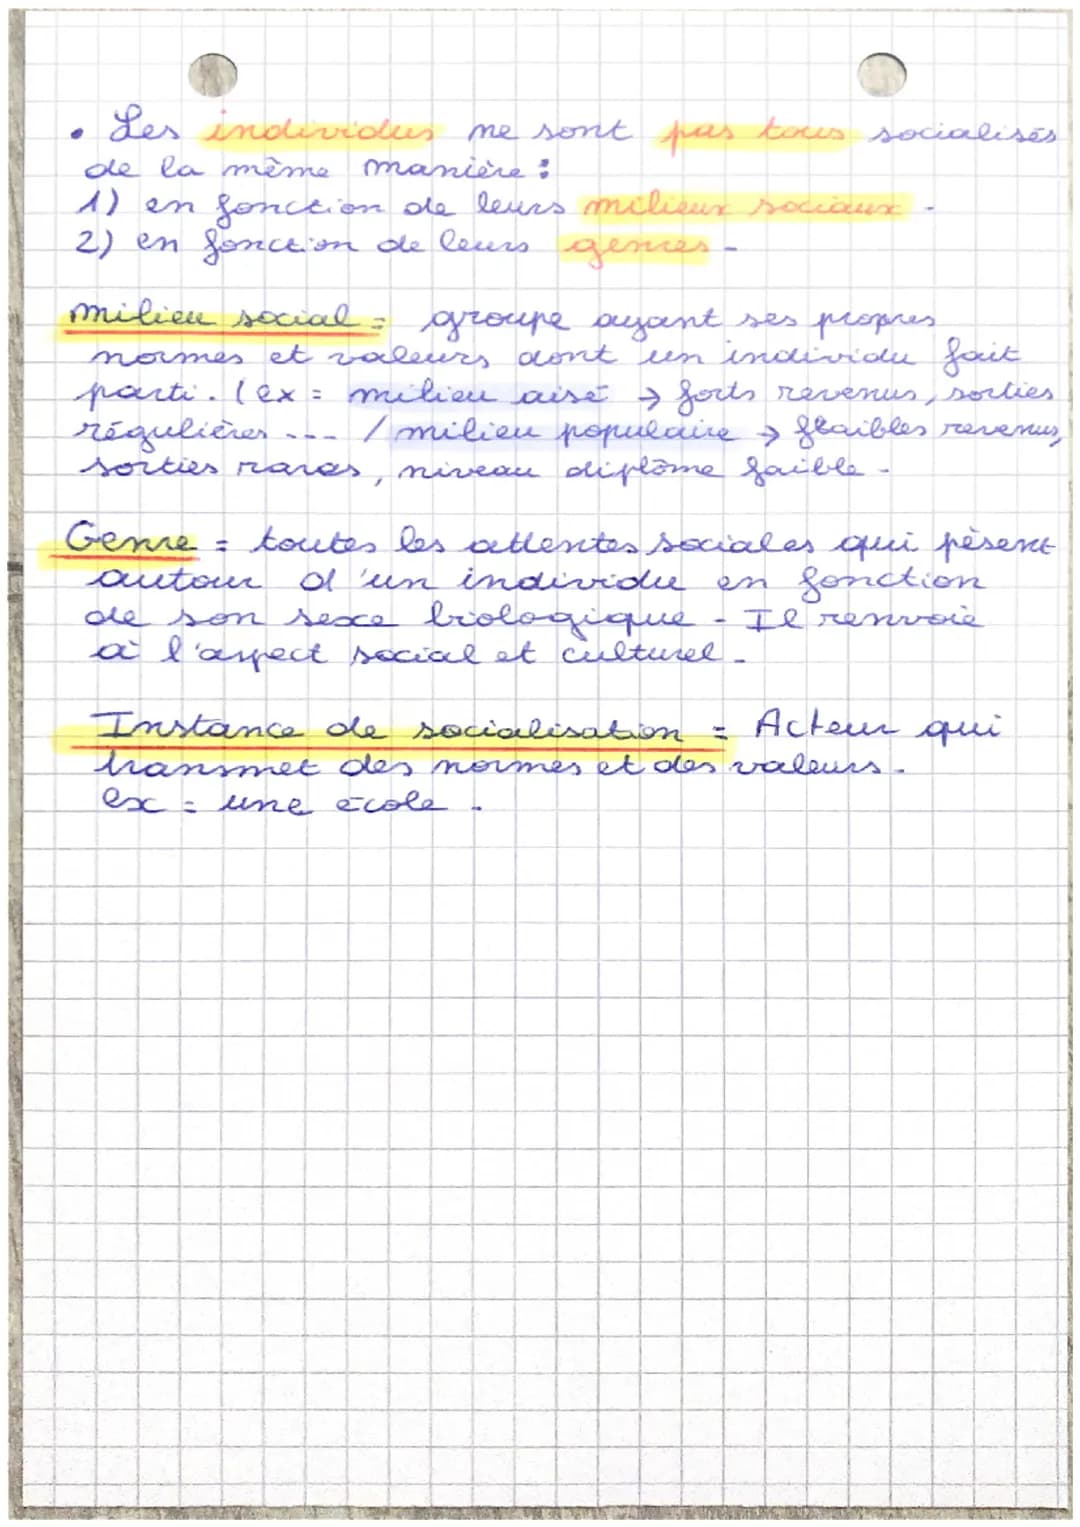 • Les individus ne sont pas tous socialisés
de la même manière :
1) en fonction de leurs milieux sociaux.
2) en fonction de leurs genres.
milieu social = groupe ayant ses propres
normes et valeurs dont un individu fait
parti. (ex = milieu aisé → forts revenus, sorties
régulières --- / milieu populaire → flaibles revenus,
sorties rares, niveau diplôme faible.
Genre = toutes les attentes sociales qui pèsent
autour d'un individu en fonction
de son sexe biologique. Il renvoie
à l'aspect social et culturel.
Instance de socialisation = Acteur qui
transmet des normes et des valeurs.
ex = une école.